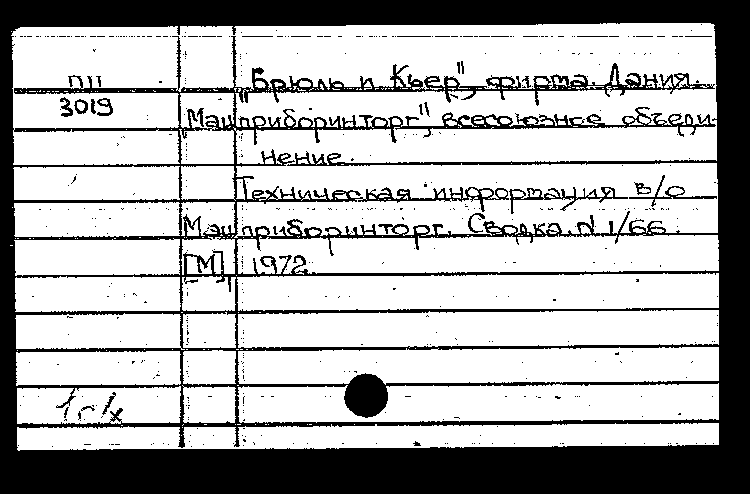 ПП
3019
„Брюль и Кьер", фирма. Дания.
„Машприборинторг", всесоюзное объеди-
нение.
Техническая информация В/О
Машприборинторг. Сводка. N 1/66.
[М], 1972.